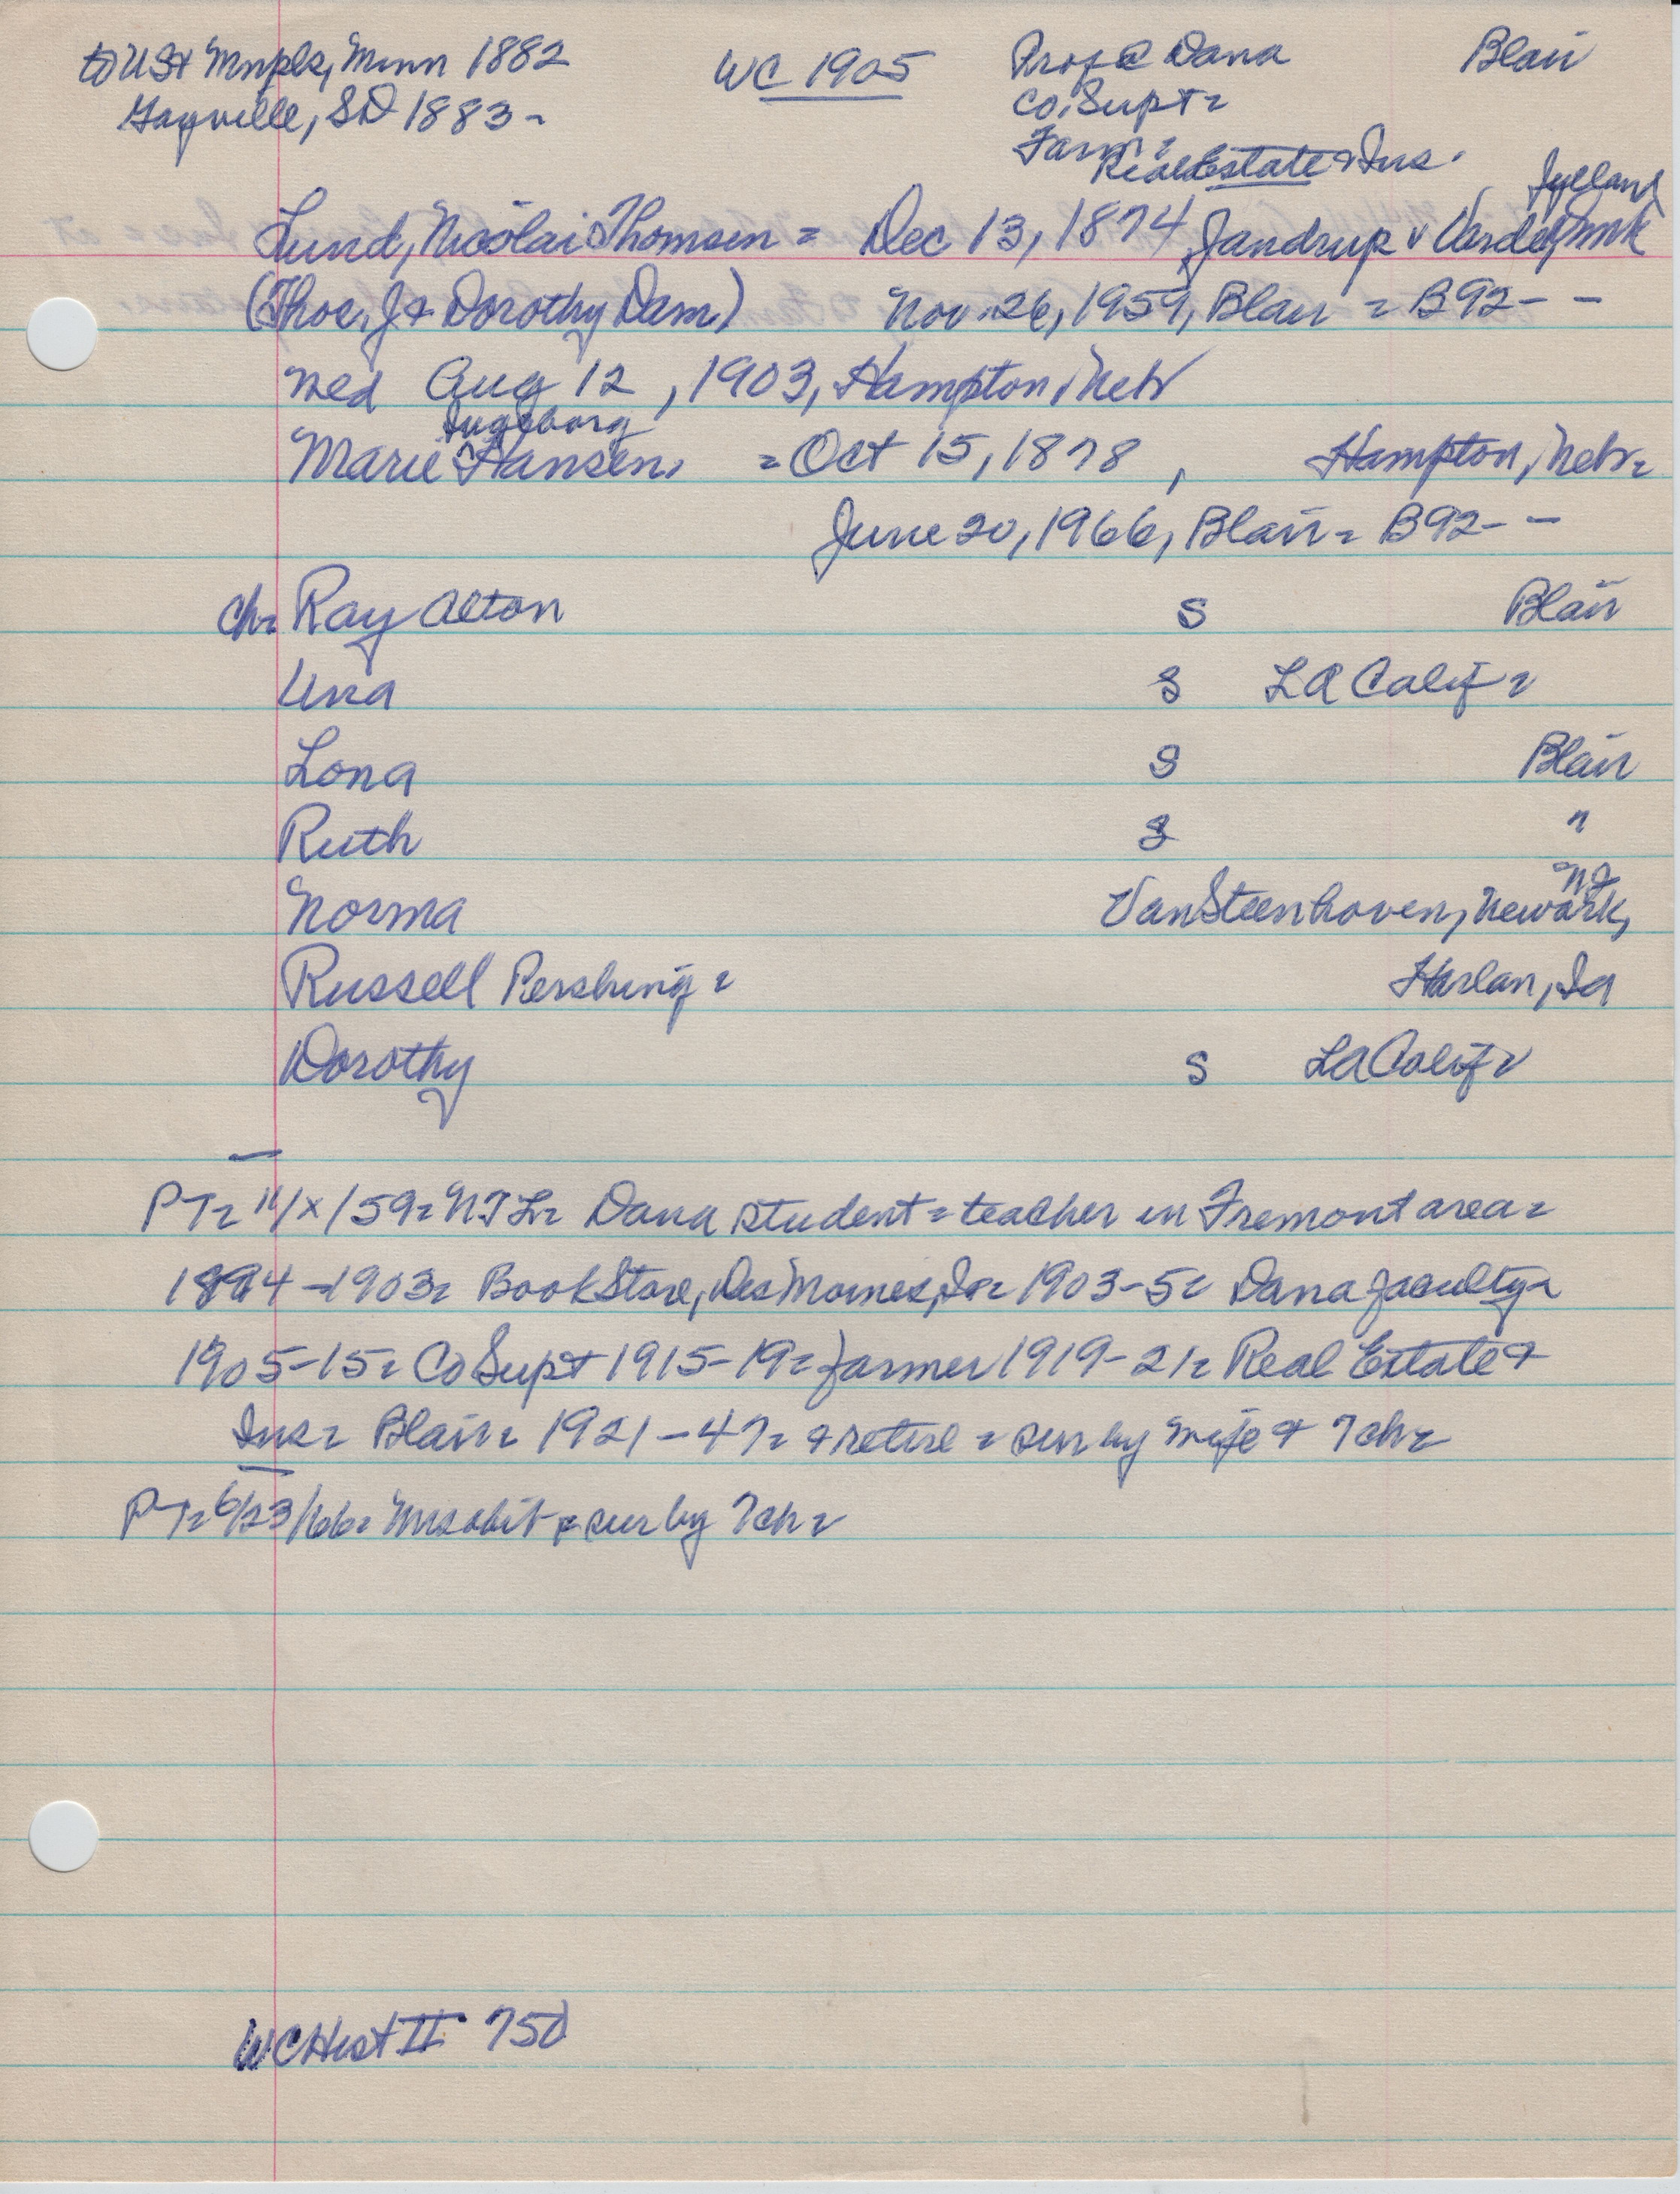 to US & Mnpls, Minn 1882 WC 1905 Prof @ Dana Blair
Gayville, SD 1883- Co. Supt =
Farm =
Real Estate & Ins. Jylland
Lund, Nicolai Thomsen = Dec 13, 1874 Jandrup v Varde, Dmk
(Thos. J & Dorothy Dam) Nov. 26, 1959, Blair = B92- -
med Aug 12, 1903, Hampton, Nebr
Ingeborg
Marie Hansen, = Oct 15, 1878, Hampton, Nebr =
June 20, 1966, Blair = B92- -
ch= Ray Alton S Blair
Una S LA Calif =
Lona S Blair
Ruth S "
NJ
Norma VanSteenhoven, Newark,
Russell Pershing = Harlan, Ia
Dorothy S LA Calif =
PT= 11/x/59= NTL= Dana student = teacher in Fremont area =
1894-1903= Book Store, Des Moines, Ia= 1903-5= Dana faculty=
1905-15= Co Supt 1915-19= farmer 1919-21= Real Estate &
Ins= Blair= 1921-47= & retire = sur by wife & 7 ch=
PT= 6/23/66= Mrs obit = sur by 7 ch=
WC Hist II 750